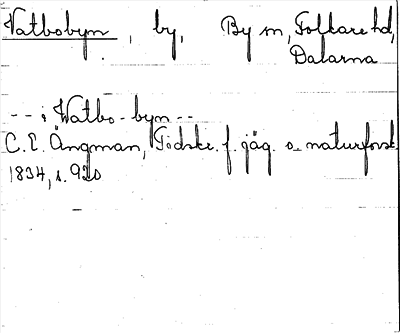 Vatbobyn, by, By sn, Folkare hd,
Dalarna
- - i Watbo-byn - -
C. E. Ängman, Tidskr. f. jäg. o. naturforsk.
1834, s. 920